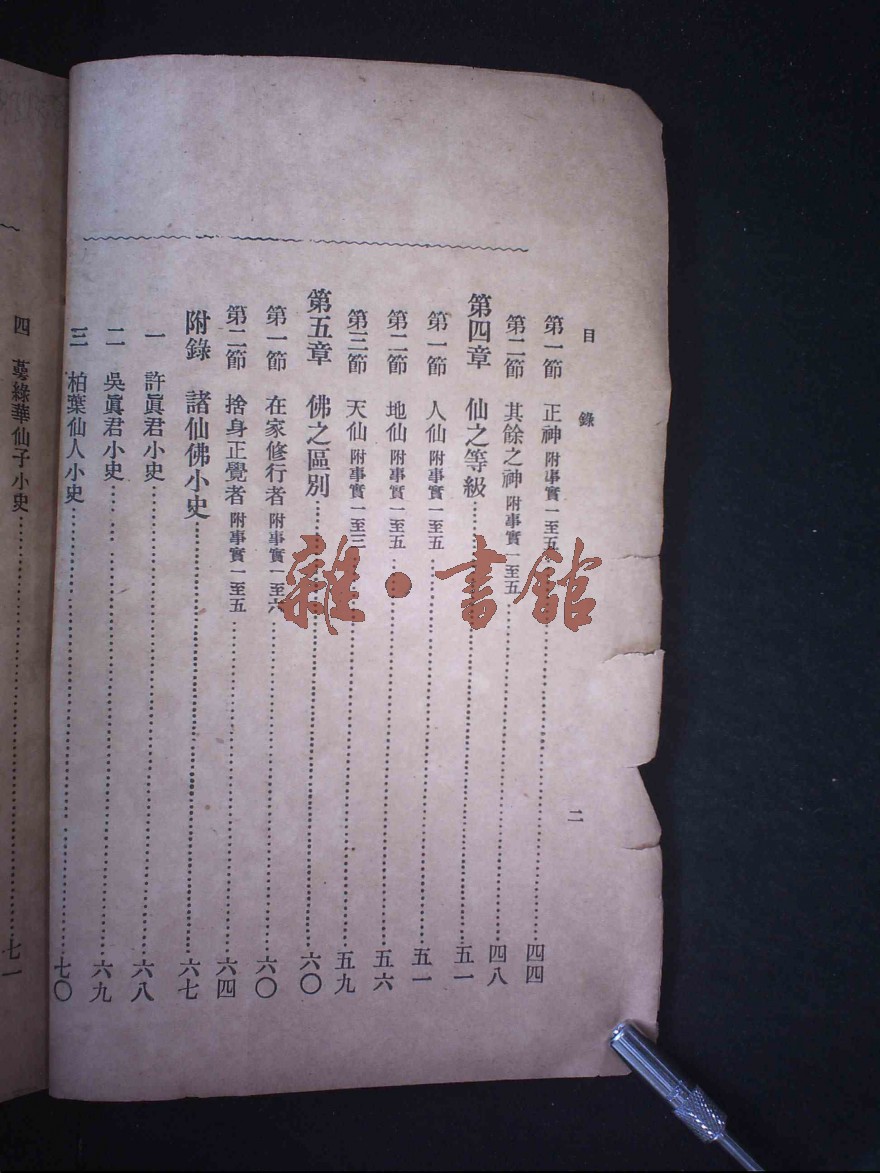 目錄
二
第一節 正神 附事實一至五……四四
第二節 其餘之神 附事實一至五……四八
第四章 仙之等級……五一
第一節 人仙 附事實一至五……五一
第二節 地仙 附事實一至五……五六
第三節 天仙 附事實一至三……五九
第五章 佛之區別……六〇
第一節 在家修行者 附事實一至六……六〇
第二節 捨身正覺者 附事實一至五……六四
附錄 諸仙佛小史……六七
一 許眞君小史……六八
二 吳眞君小史……六九
三 柏葉仙人小史……七〇
四 萼綠華仙子小史……七一
雜·書館